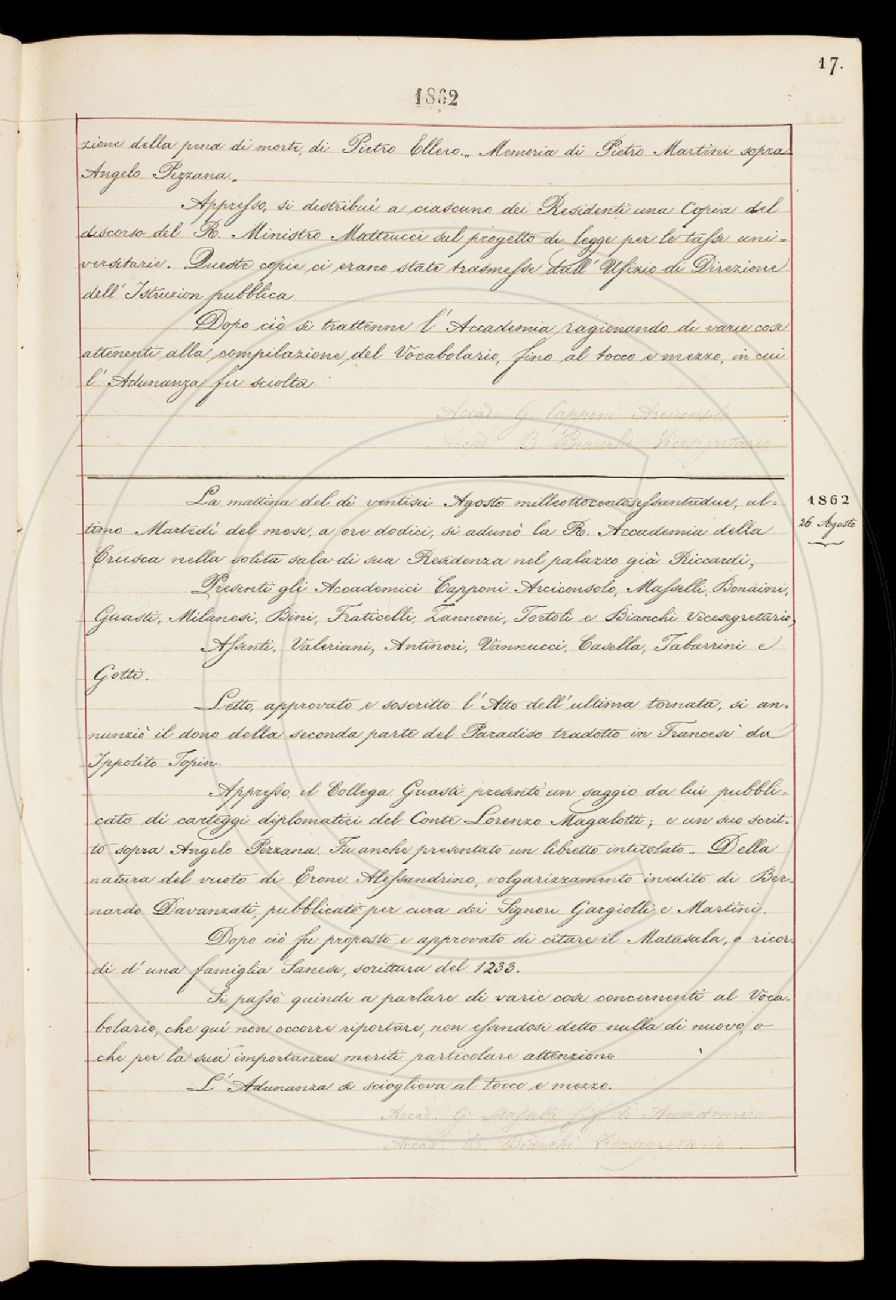 17.
1862
zione della pena di morte, di Pietro Ellero.„ Memoria di Pietro Martini sopra
Angelo Pezzana„
Appresso, si distribuì a ciascuno dei Residenti una Copia del
discorso del R. Ministro Matteucci sul progetto di legge per le tasse uni=
versitarie. Queste copie ci erano state trasmesse dall' Ufizio di Direzione
dell' Istruzion pubblica
Dopo ciò si trattenne l' Accademia ragionando di varie cose
attenenti alla compilazione del Vocabolario, fino al tocco e mezzo, in cui
l' Adunanza fu sciolta.
Accad. G. Capponi Arciconsolo
Accad. B. Bianchi Vicesegretario
1862
26 Agosto
La mattina del dì ventisei Agosto milleottocentosessantadue, ul=
timo Martedì del mese, a ore dodici, si adunò la R. Accademia della
Crusca nella solita sala di sua Residenza nel palazzo già Riccardi,
Presenti gli Accademici Capponi Arciconsolo, Masselli, Bonaini,
Guasti, Milanesi, Bini, Fraticelli, Zannoni, Tortoli e Bianchi vicesegretario,
Assenti, Valeriani, Antinori, Vannucci, Casella, Tabarrini e
Gotti.
Letto, approvato e soscritto l' Atto dell' ultima tornata, si an=
nunziò il dono della seconda parte del Paradiso tradotto in Francese da
Ippolito Topin.
Appresso, il Collega Guasti presentò un saggio da lui pubbli=
cato di carteggi diplomatici del Conte Lorenzo Magalotti; e un suo scrit=
to sopra Angelo Pezzana. Fu anche presentato un libretto intitolato„ Della
natura del vuoto di Erone Alessandrino, volgarizzamento inedito di Ber=
nardo Davanzati, pubblicato per cura dei Signori Gargiolli e Martini.
Dopo ciò fu proposto e approvato di citare il Matasala, o ricor=
di d' una famiglia Sanese, scrittura del 1233.
Si passò quindi a parlare di varie cose concernenti al Voca=
bolario, che qui non occorre riportare, non essendosi detto nulla di nuovo, o
che per la sua importanza meriti particolare attenzione
L' Adunanza si scioglieva al tocco e mezzo.
Accad. G. Masselli ff. di Arciconsolo
Accad. B. Bianchi Vicesegretario